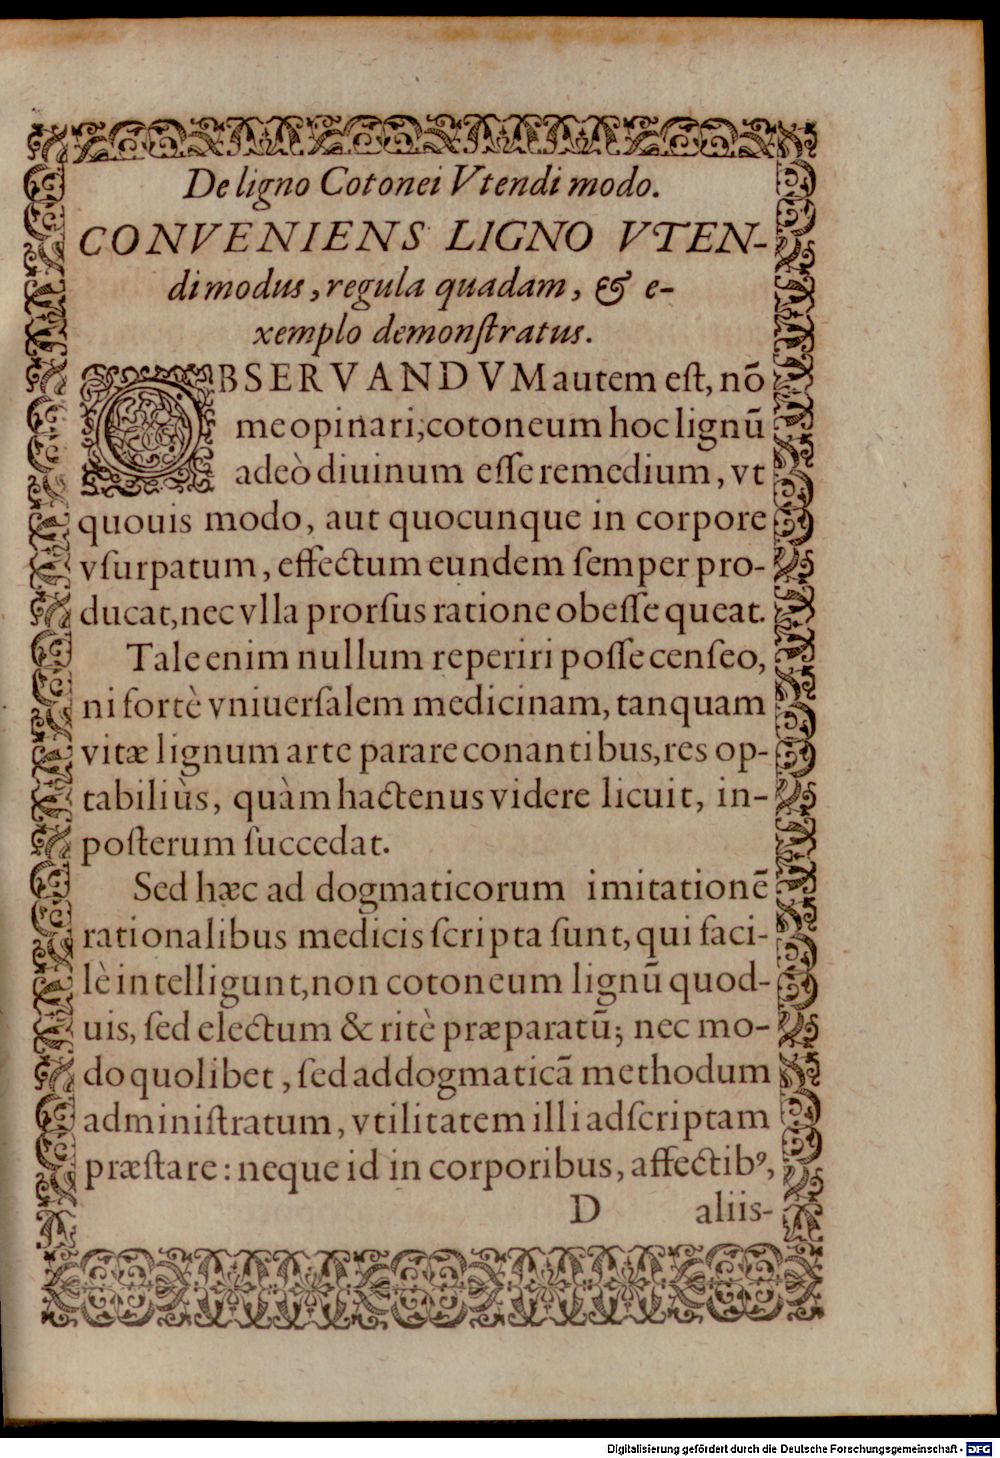 De ligno Cotonei Vtendi modo.
CONVENIENS LIGNO VTEN-
di modus, regula quadam, & e-
xemplo demonſtratus.
OBSERVANDVM autem eſt, nō
me opinari; cotoneum hoc lignū
adeò diuinum eſſe remedium, vt
quouis modo, aut quocunque in corpore
vſurpatum, effectum eundem ſemper pro-
ducat, nec vlla prorſus ratione obeſſe queat.
Tale enim nullum reperiri poſſe cenſeo,
ni fortè vniuerſalem medicinam, tanquam
vitæ lignum arte parare conantibus, res op-
tabiliùs, quàm hactenus videre licuit, in-
poſterum ſuccedat.
Sed hæc ad dogmaticorum imitationē
rationalibus medicis ſcripta ſunt, qui faci-
lè intelligunt, non cotoneum lignū quod-
uis, ſed electum & ritè præparatū; nec mo-
do quolibet, ſed ad dogmaticā methodum
adminiſtratum, vtilitatem illi adſcriptam
præſtare: neque id in corporibus, affectibꝰ,
D aliis-
Digitalisierung gefördert durch die Deutsche Forschungsgemeinschaft - DFG